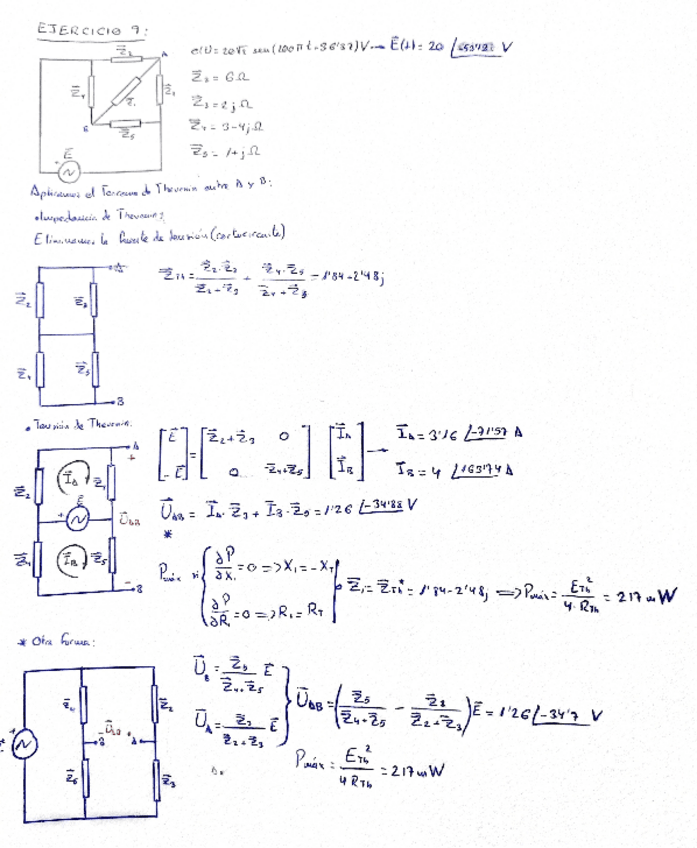 EJERCICIO 9:
e(t) = 20√2 sen(100πt-36'87)V → E(t) = 20 V
Z₂ = 6Ω
Z₃ = 2jΩ
Z₄ = 3-4jΩ
Z₅ = 1+jΩ
Z₂
A
Z₄
Z₁
Z₃
B
Z₅
E
Aplicamos el Teorema de Thevenin entre A y B:
•Impedancia de Thevenin:
Eliminamos la fuente de tensión (cortocircuito)
Z_Th = Z₂·Z₃ / Z₂+Z₃ + Z₄·Z₅ / Z₄+Z₅ = 1'84+2'48j
A
Z₂
Z₃
Z₄
Z₅
B
• Tensión de Thevenin:
[E; -E] = [Z₂+Z₃ 0; 0 Z₄+Z₅] [I_A; I_B] → I_A = 3'16 ∠-71'57 A
I_B = 4 ∠163'74 A
A
+
Z₂
I_A
Z₃
E
U_AB
Z₄
I_B
Z₅
-
B
U_AB = I_A·Z₃ + I_B·Z₅ = 1'26 ∠-34'88 V
*
Pmáx si { ∂P/∂X₁ = 0 => X₁ = -X_T
∂P/∂R₁ = 0 => R₁ = R_T } Z₁ = Z_Th* = 1'84-2'48j => Pmáx = E_Th² / 4·R_Th = 217 mW
* Otra forma:
Z₄
Z₂
U_BA
B
A
Z₅
Z₃
U_B = Z₅ / Z₄+Z₅ E
U_A = Z₃ / Z₂+Z₃ E
U_AB = (Z₅ / Z₄+Z₅ - Z₃ / Z₂+Z₃) E = 1'26 ∠-34'7 V
Pmáx = E_Th² / 4 R_Th = 217 mW